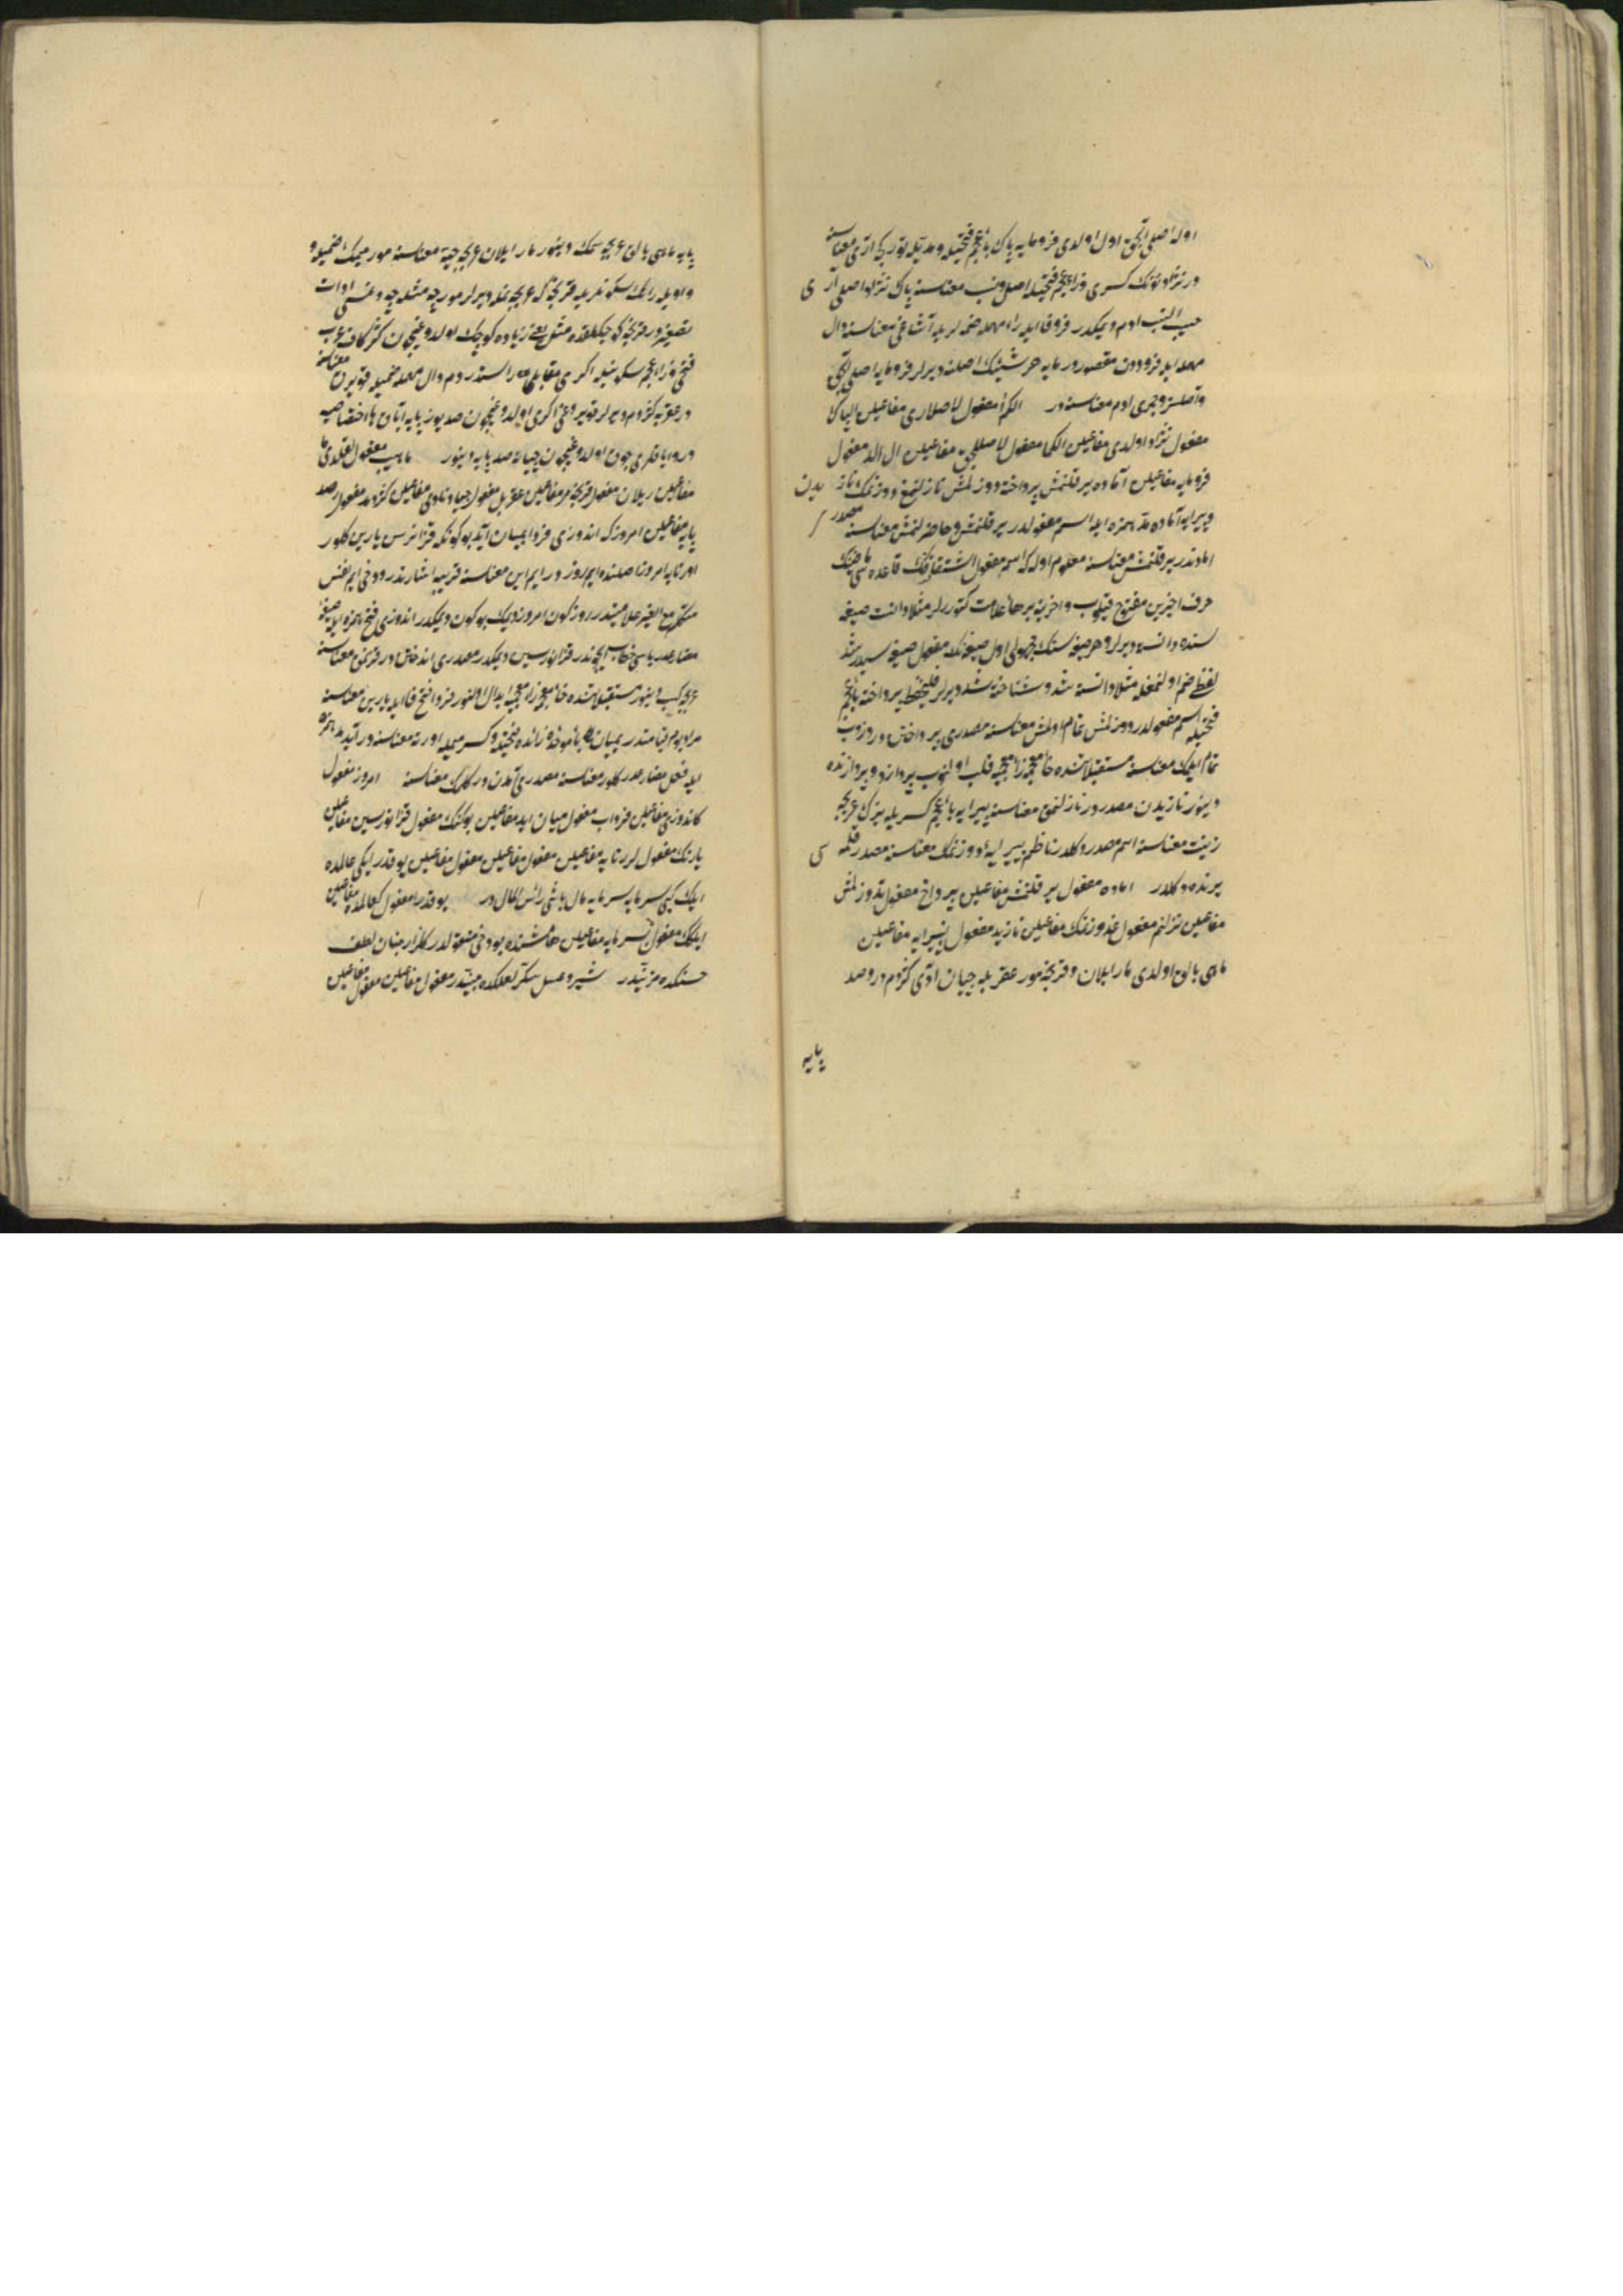 اوله اصلی الچق اول اولدی فرومایه پاک باء عجم فتحیله و مدیله تورکجه آری معناسنه
در نژاد نونک کسری و زاء عجم فتحیله اصل و نسب معناسنه پاک نژاد اصلی آری
حسیب النسب ادم دیمکدر فرو فا ایله راء مهمله ضمه لریله آشاغی معناسنه دال
مهمله ایله فروددن مقصوردر مایه هر شیئک اصلنه دیرلر فرومایه اصلی الچق
و اصلسز و جمری ادم معناسنه در الکم أمفعول لاصلاری مفاعیلن الپاک
مفعول نژاد اولدی مفاعیلن الکما مفعول لاصللچق مفاعیلن ال الد مفعول
فرومایه مفاعیلن آماده یر قلنمش پرداخته دوزلمش نازلنمغ دوزنمک نازیدن
و پیرایه آماده مد همزه ایله اسم مفعولدر یر قلنمش و حاضرلنمش معناسنه مصدر
اماددندر یر قلنمش معناسنه معلوم اوله که اسم مفعول اشتقاقنک قاعده سی ماضینک
حرف اخیرین مفتوح قیلوب و اخرینه بر هاء علامت کتوررلر مثلا دانست صیغه
سنده دانسته دیرلر و هر صیغه سنک مجهولی اول صیغه نک مفعول صیغه سیدر شد
لفظی ضم اولنمغله مثلا دانسته شد و شناخته شد دیرلر پرداخته باء عجم
فتحیله اسم مفعولدر دوزلمش تمام اولمش معناسنه مصدری پرداختن در دوزوب
تمام ایلمک معناسنه مستقبلاتنده خاء معجمه زاء معجمیه قلب اولنوب پردازد و پردازنده
دینور نازیدن مصدردر نازلنمق معناسنه پیرایه باء عجم کسریله بزک عربجه
زینت معناسنه اسم مصدر و کلدر ناظم پیرایه دوزنمک معناسنه مصدر قلمه سی
یرنده دکلدر اماده مفعول یر قلنمش مفاعیلن پرداخ مفعول تدوزلمش
مفاعیلن نزلنم مفعول غدوزنمک مفاعیلن نازید مفعول نپیرایه مفاعیلن
ماهی بالق اولدی مار ایلان و قرنجه مور عقربله چیان ادی کژدم در و صد
پایه
پایه ماهی بالق عربجه سمک دینور مار ایلان عربجه حیة معناسنه مور میمک ضمیله و
واویله رانک سکونلریله قرنجه که عربجه نمله دیرلر مورچه مثله چه و غنی ادات
تصغیردر قرنجه کوچکلکده مثل یعنی زیاده کوچک اولدوغیچون کژ کاف عرب
فتحی و زاء عجم سکونیله اکری مقابلی راستدر دم دال مهمله ضمیله قویرق معناسنه
در عقربه کژدم دیرلر قویروغی اکری اولدوغیچون صد یوز پایه ایاق ها اختصاصیه
در و ایاقلری چوق اولدوغیچون چیانه صد پایه دینور ماهیب مفعول لقلدی ما
مفاعیلن ریلان مفعول قرنجه مر مفاعیلن عقربل مفعول چیانادی مفاعیلن کژدمد مفعول رصد
پایه مفاعیلن امروزکه اندوزی فردا بمیان آید بوکونکه قزانرسن یارین کلور
اورتایه امروز اصلنده ایم روز در ایم این معناسنه قریبه اشارتدر و دخی ایم نفس
متکلم مع الغیر علامتیدر روز کون امروز دیمک بوکون دیمکدر اندوزی فتح همزه ایله صیغه
مضارعدر یاسی خطاب ایچوندر قزانورسین دیمکدر مصدری اندوختن در قزنمق معناسنه
عربجه کسب دینور مستقبلاتنده خاء معجمه زاء معجمیه ابدال اولنور فردا فتح فا ایله یارین معناسنه
مراد یوم قیامتدر بمیان باء موحده زائده فتحیله و کسر میمله اورته معناسنه در آید مد همزه
ایله فعل مضارعدر کلور معناسنه مصدری آمدن در کلمک معناسنه امروز مفعول
کاندوزی مفاعیلن فرداب مفعول میان اید مفاعیلن بوکونک مفعول قزانورسین مفاعیلن
یارنک مفعول لررتایه مفاعیلن مفعول مفاعیلن مفعول مفاعیلن یوقدر ایکی عالمده
ایلک کبی سرمایه سرمایه مال باشی رأس المال در یوقدر مفعول کعالمده مفاعیلن
ایلک مفعول سرمایه مفاعیلن هامشنده بو دخی نسخه اولدر کلزار جنان لطف
حسنکده مزیتدر شیر و عسل شکر لعلکده چشتدر مفعول مفاعیلن مفعول مفاعیلن